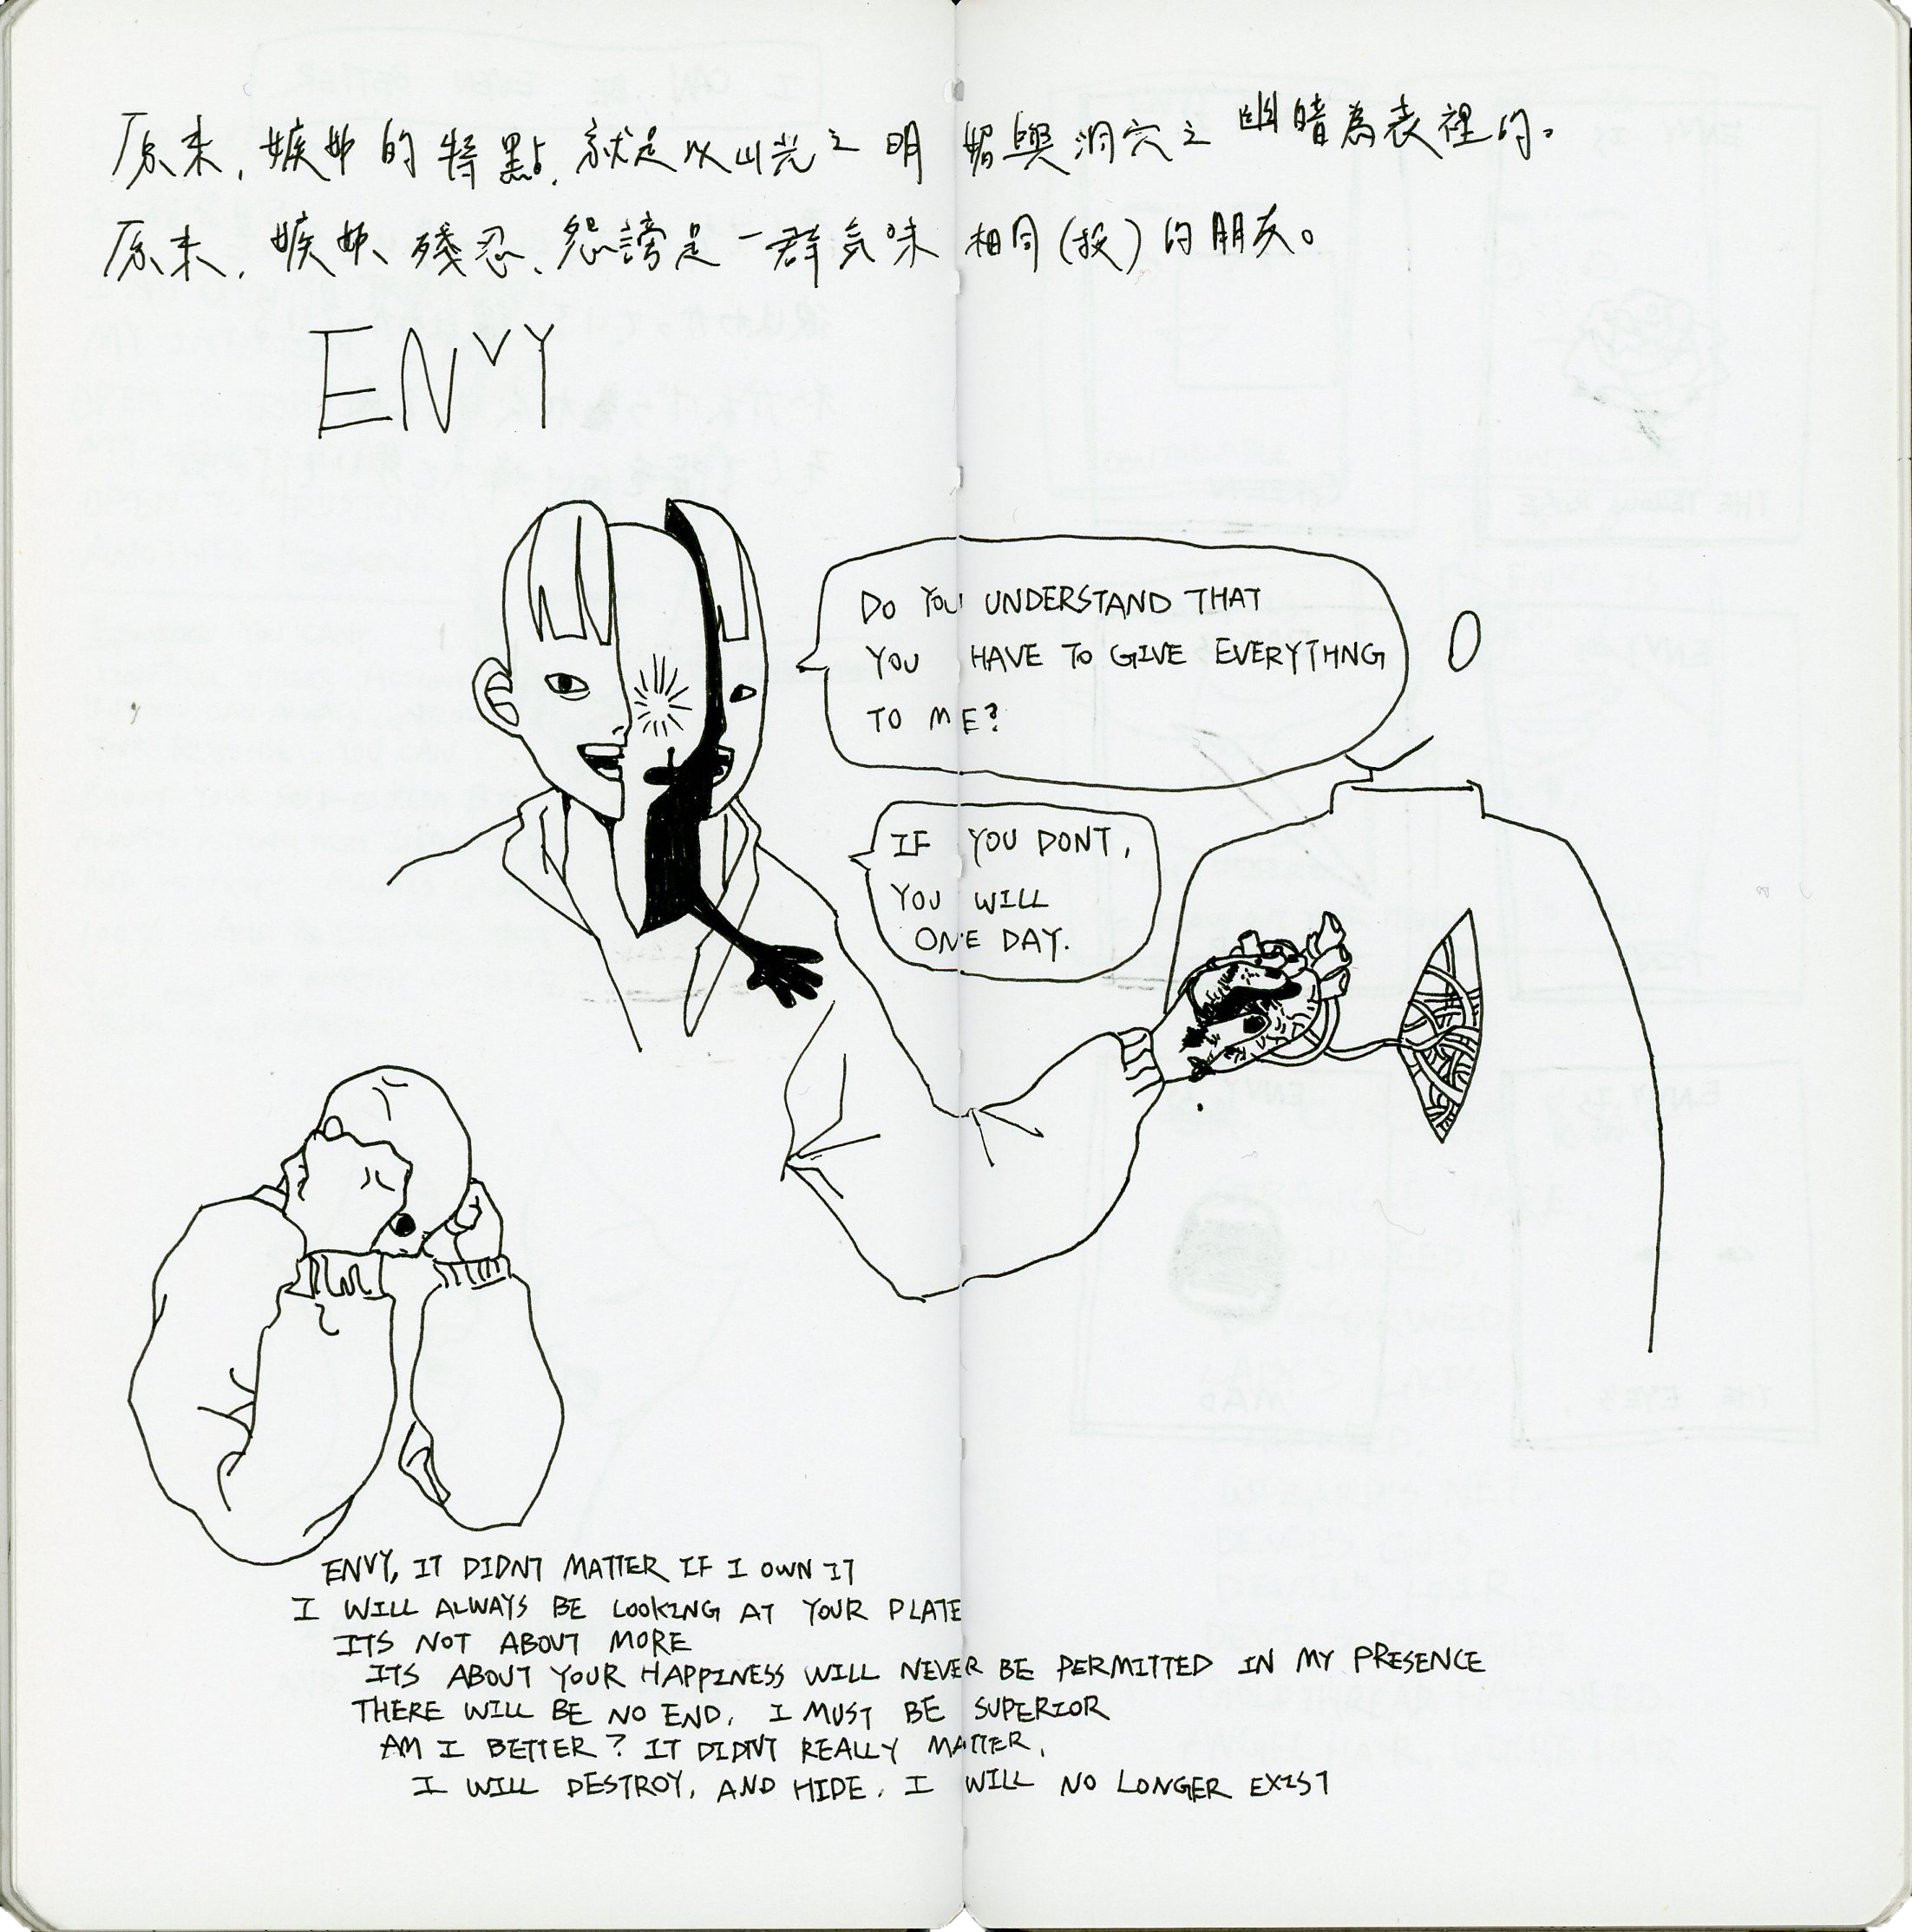 原来,嫉妒的特點,就是以山光之明媚與洞穴之幽暗為表裡的。
原来,嫉妒、殘忍、怨謗是一群気味相同(投)的朋友。
ENVY
DO YOU UNDERSTAND THAT
YOU HAVE TO GIVE EVERYTHNG
TO ME?
IF YOU DONT,
YOU WILL
ONE DAY.
ENVY, IT DIDNT MATTER IF I OWN IT
I WILL ALWAYS BE LOOKING AT YOUR PLATE
ITS NOT ABOUT MORE
ITS ABOUT YOUR HAPPINESS WILL NEVER BE PERMITTED IN MY PRESENCE
THERE WILL BE NO END, I MUST BE SUPERIOR
AM I BETTER? IT DIDNT REALLY MATTER,
I WILL DESTROY, AND HIDE, I WILL NO LONGER EXIST